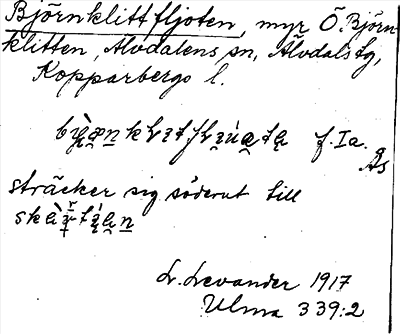 Björnklittfljoten, myr Ö. Björn
klitten, Älvdalens sn, Älvdals tg,
Kopparbergs l.
f. Ia.
sträcker sig söderut till
L. Levander 1917
Ulma 339:2